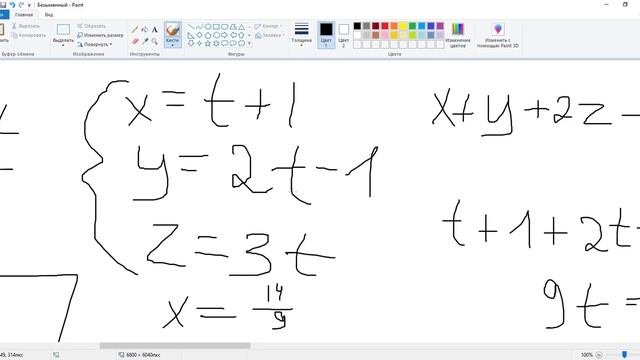 Безымянный - Paint
Файл Главная Вид
Вставить Вырезать Копировать Выделить Обрезать Изменить размер Повернуть Кисти Контур Заливка Толщина Цвет 1 Цвет 2 Изменение цветов Изменить с помощью Paint 3D
Буфер обмена Изображение Инструменты Фигуры Цвета
x = t + 1
y = 2t - 1
z = 3t
x = 14/9
x + y + 2z -
t + 1 + 2t
9t =
49, 314пкс 6800 × 6040пкс 100%